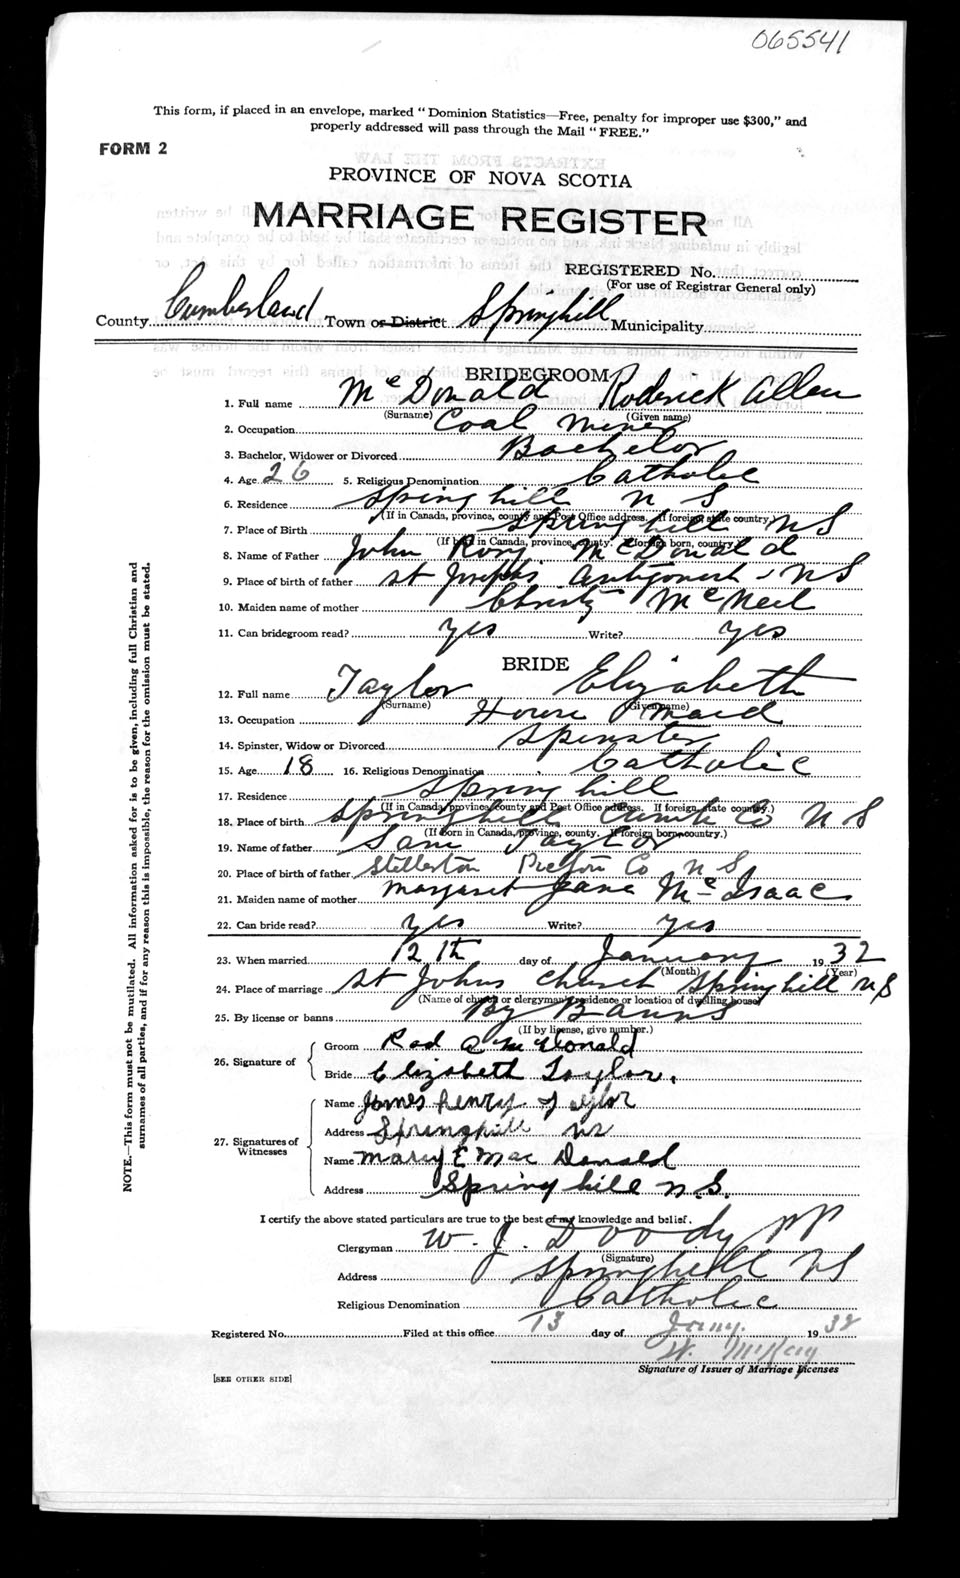 065541
This form, if placed in an envelope, marked "Dominion Statistics—Free, penalty for improper use $300," and
properly addressed will pass through the Mail "FREE."
FORM 2
PROVINCE OF NOVA SCOTIA
MARRIAGE REGISTER
REGISTERED No.
(For use of Registrar General only)
County Cumberland Town or District Springhill Municipality
BRIDEGROOM
1. Full name McDonald Roderick Allen
(Surname) (Given name)
2. Occupation Coal Miner
3. Bachelor, Widower or Divorced Bachelor
4. Age 26 5. Religious Denomination Catholic
6. Residence Springhill N S
(If in Canada, province, county and Post Office address. If foreign, state country.)
7. Place of Birth Springhill NS
(If born in Canada, province, county. If foreign born, country.)
8. Name of Father John Rory McDonald
9. Place of birth of father St Josephs Antigonish NS
10. Maiden name of mother Christy McNeil
11. Can bridegroom read? yes Write? yes
BRIDE
12. Full name Taylor Elizabeth
(Surname) (Given name)
13. Occupation House Maid
14. Spinster, Widow or Divorced Spinster
15. Age 18 16. Religious Denomination Catholic
17. Residence Springhill
(If in Canada, province, county and Post Office address. If foreign, state country.)
18. Place of birth Springhill Cumb Co N S
(If born in Canada, province, county. If foreign born, country.)
19. Name of father Sam Taylor
20. Place of birth of father Stellerton Pictou Co N S
21. Maiden name of mother Margaret Jane McIsaac
22. Can bride read? yes Write? yes
23. When married 12th day of January 1932
(Month) (Year)
24. Place of marriage St Johns Church Springhill NS
(Name of church or clergyman's residence or location of dwelling house)
25. By license or banns By Banns
(If by license, give number.)
26. Signature of Groom Rod A McDonald
Bride Elizabeth Taylor.
27. Signatures of Witnesses Name James Henry Taylor
Address Springhill NS
Name Mary E MacDonald
Address Springhill N.S.
I certify the above stated particulars are true to the best of my knowledge and belief.
Clergyman W. J. Doody PP
(Signature)
Address Springhill NS
Religious Denomination Catholic
Registered No. Filed at this office 13 day of Jany. 1932
W. McKay
Signature of Issuer of Marriage Licenses
[SEE OTHER SIDE]
NOTE.—This form must not be mutilated. All information asked for is to be given, including full Christian and
surnames of all parties, and if for any reason this is impossible, the reason for the omission must be stated.